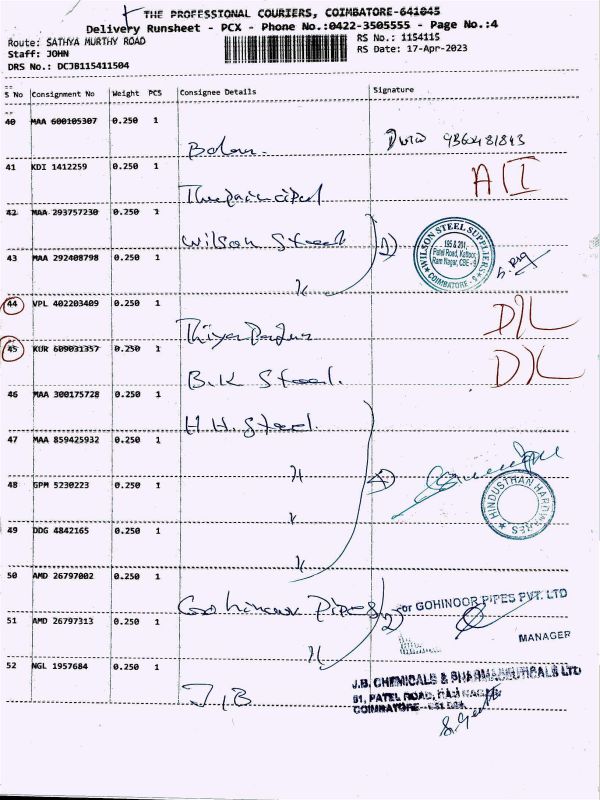 THE PROFESSIONAL COURIERS, COIMBATORE-641045
Delivery Runsheet - PCX - Phone No.:0422-3505555 - Page No.:4
Route: SATHYA MURTHY ROAD
RS No.: 1154115
Staff: JOHN
RS Date: 17-Apr-2023
DRS No.: DCJB115411504
S No Consignment No Weight PCS Consignee Details Signature
40 MAA 600105307 0.250 1
9360481843
41 KDI 1412259 0.250 1
42 MAA 293757230 0.250 1
Wilson Steel
WILSON STEEL SUPPLIERS
195 & 201,
Patel Road, Kattoor,
Ram Nagar, CBE - 9
COIMBATORE - 9
43 MAA 292408798 0.250 1
44 VPL 402203409 0.250 1
D/L
45 KUR 609031357 0.250 1
B.K Steel.
D/L
46 MAA 300175728 0.250 1
H.H. Steel.
47 MAA 859425932 0.250 1
48 GPM 5230223 0.250 1
HINDUSTHAN HARDWARES
49 DDG 4842165 0.250 1
50 AMD 26797002 0.250 1
Gohinoor Pipes
For GOHINOOR PIPES PVT. LTD
51 AMD 26797313 0.250 1
MANAGER
52 NGL 1957684 0.250 1
J.B
J.B. CHEMICALS & PHARMACEUTICALS LTD
91, PATEL ROAD, RAM NAGAR
COIMBATORE